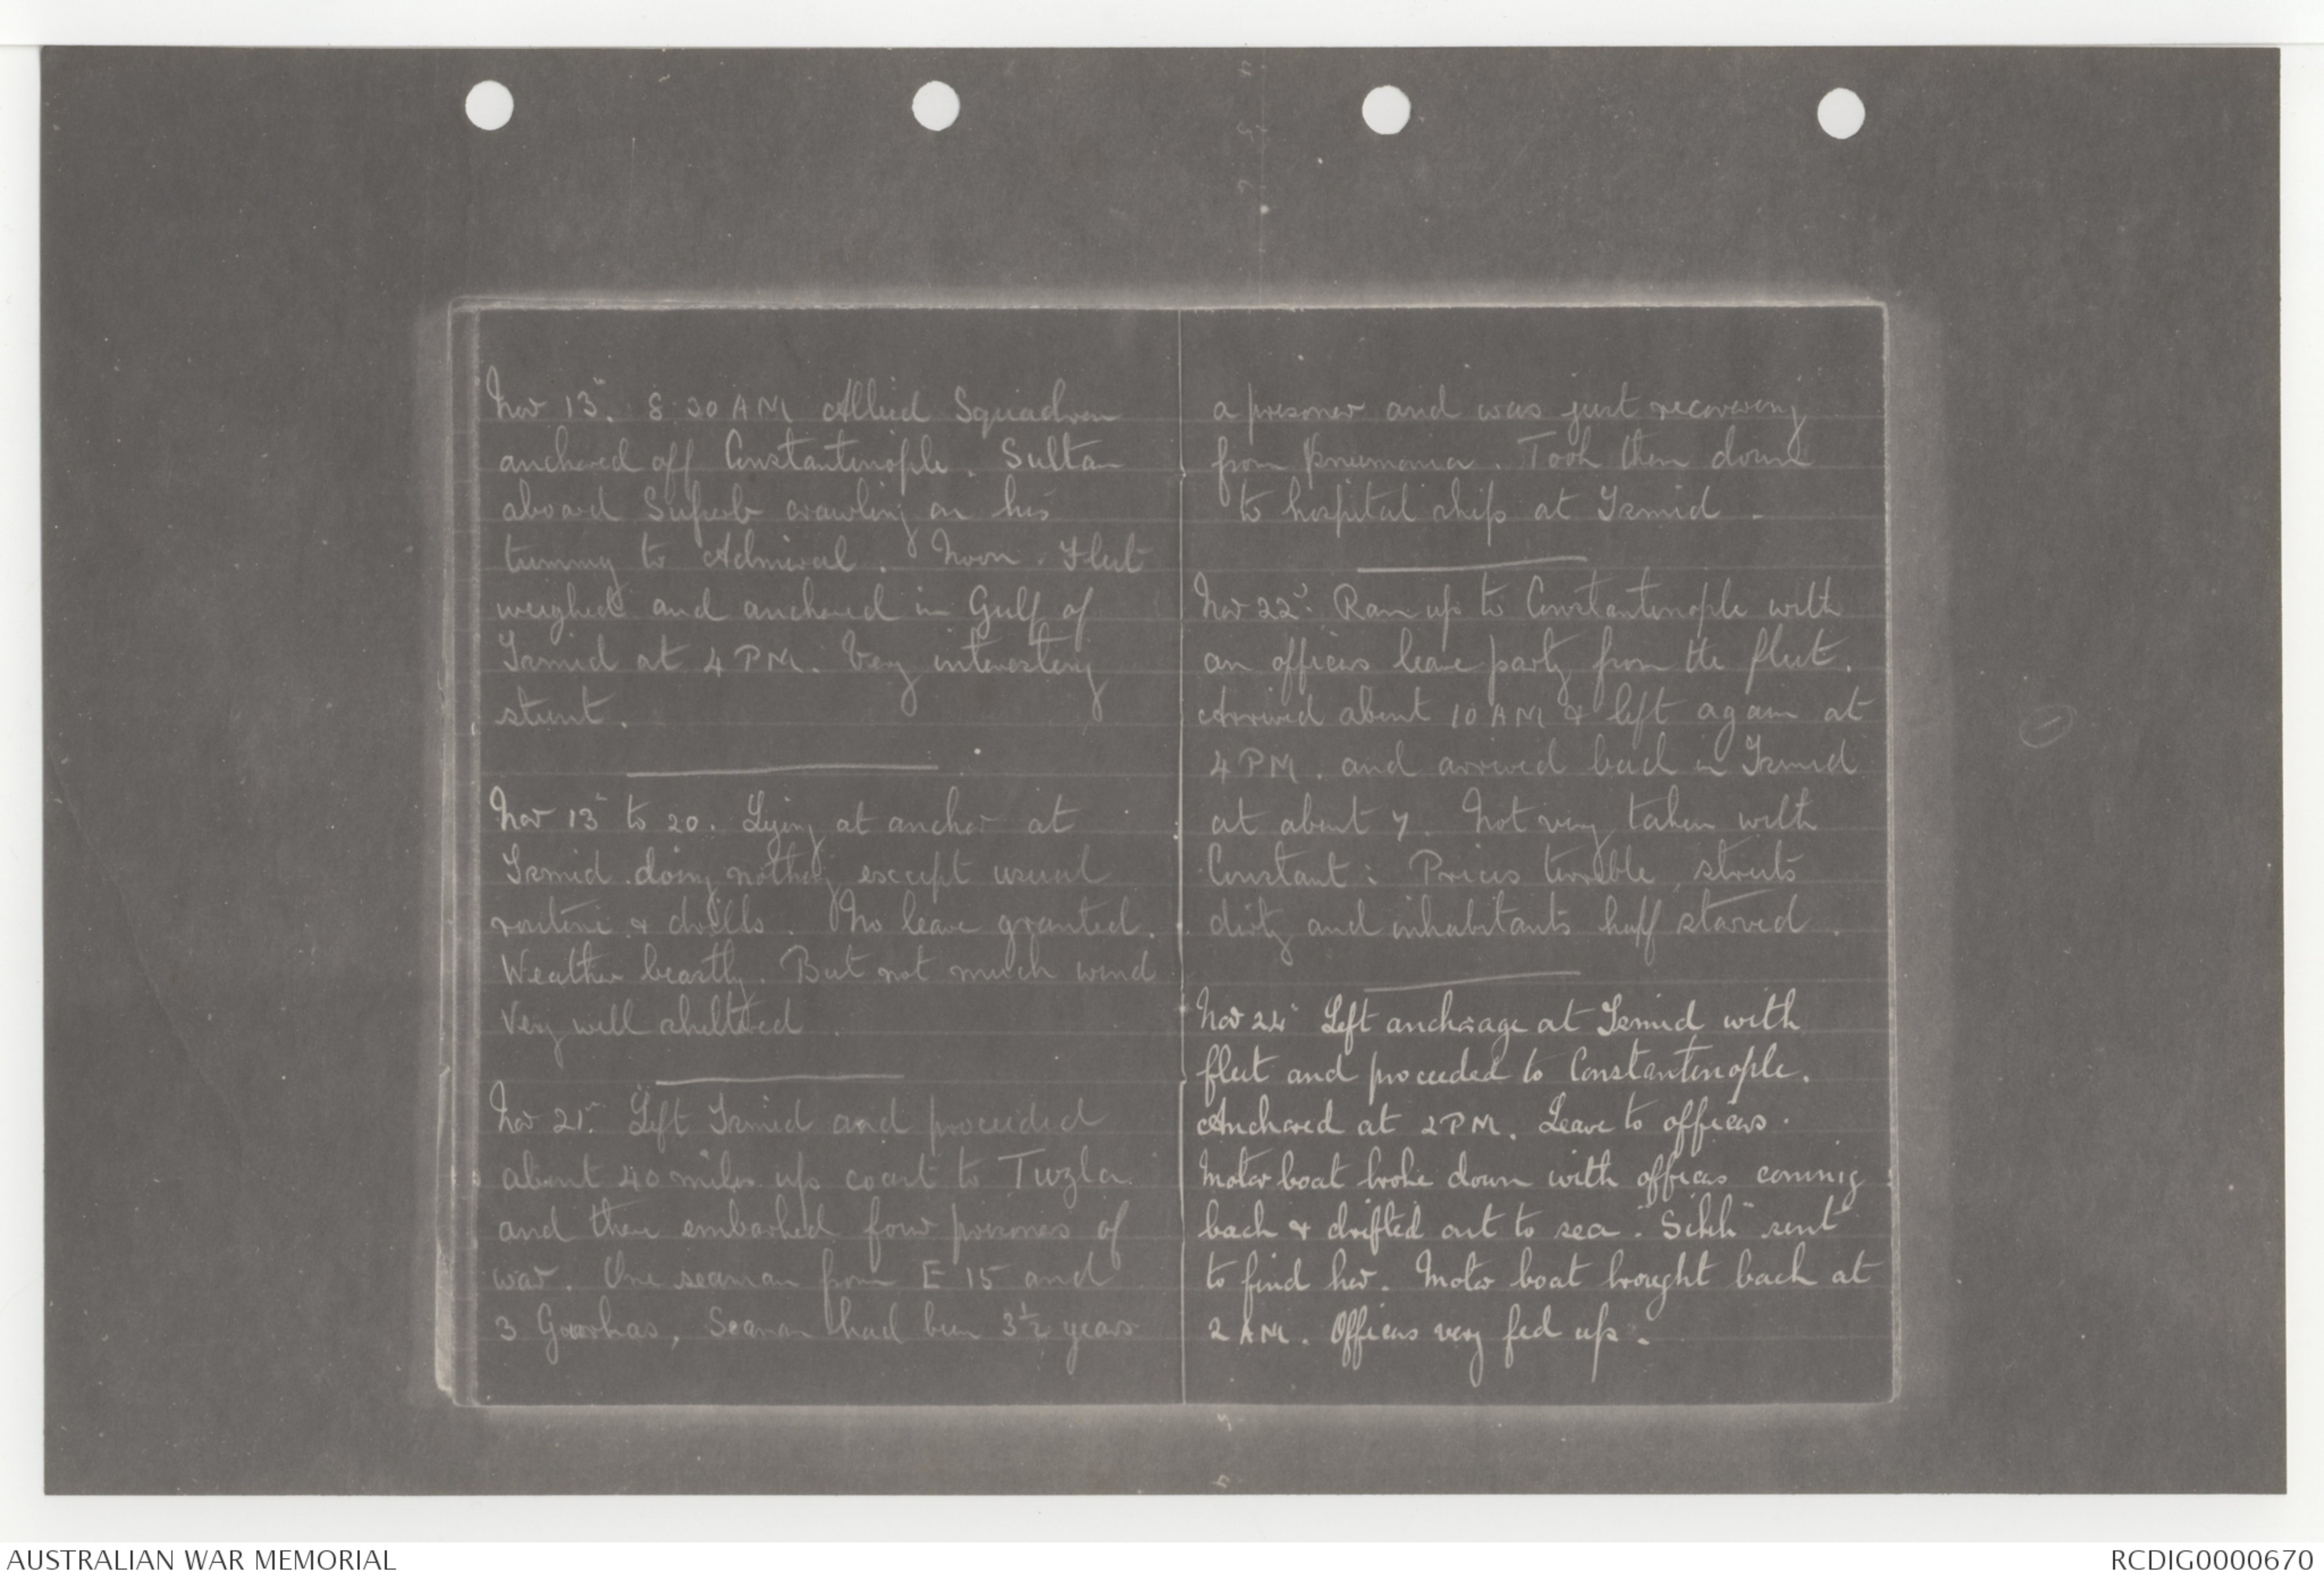 Nov 13th. 8.30 AM Allied Squadron
anchored off Constantinople. Sultan
aboard Superb crawling on his
tummy to Admiral. Noon. Fleet
weighed and anchored in Gulf of
Ismid at 4 PM. Very interesting
stunt.
Nov 13th to 20. Lying at anchor at
Ismid doing nothing except usual
routine & drills. No leave granted.
Weather beastly. But not much wind
Very well sheltered.
Nov 21st. Left Ismid and proceeded
about 40 miles up coast to Tuzla
and there embarked four prisoners of
war. One seaman from E 15 and
3 Goorkas, Seaman had been 3½ years
a prisoner and was just recovering
from pneumonia. Took them down
to hospital ship at Ismid -
Nov 22d: Ran up to Constantinople with
an officers leave party from the fleet.
Arrived about 10 AM & left again at
4 PM. and arrived back in Ismid
at about 7. Not very taken with
Constant: Prices terrible, streets
dirty and inhabitants half starved.
Nov 24th Left anchorage at Ismid with
fleet and proceeded to Constantinople.
Anchored at 2 PM. Leave to officers.
Motor boat broke down with officers coming
back & drifted out to sea. "Sikh" sent
to find her. Motor boat brought back at
2 AM. Officers very fed up.
AUSTRALIAN WAR MEMORIAL
RCDIG0000670